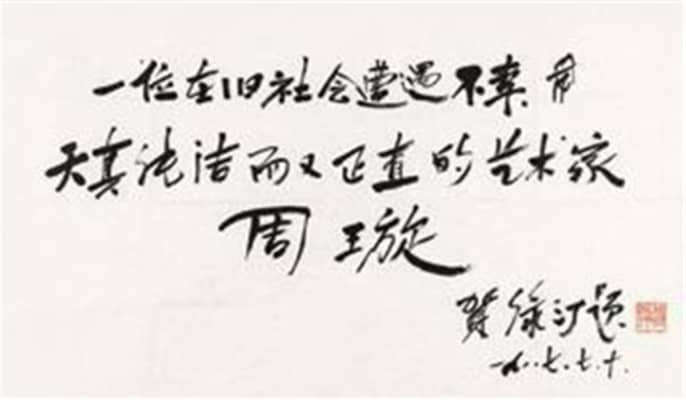 一位在旧社会遭遇不幸,
天真纯洁而又正直的艺术家
周璇
贺绿汀题
一九八七.七.十.